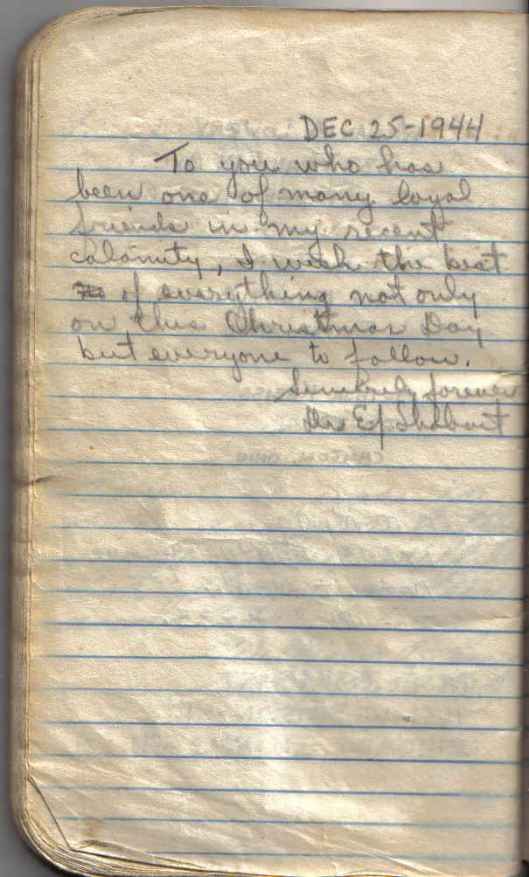 DEC 25-1944
To you who has
been one of many loyal
friends in my recent
calamity, I wish the best
of everything not only
on this Christmas Day
but everyone to follow.
Sincerely forever